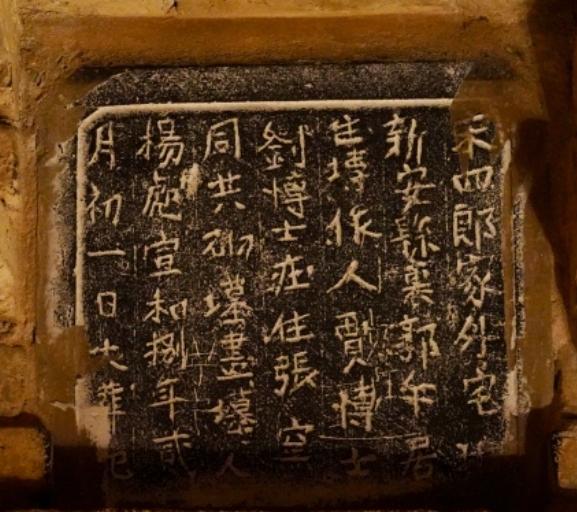 宋四郎家外宅
新安縣裏郭午居
住塼作人賈博士
劉博士庄住張窑
同共砌墓畫墓人
楊彪宣和捌年貳
月初一日大葬記